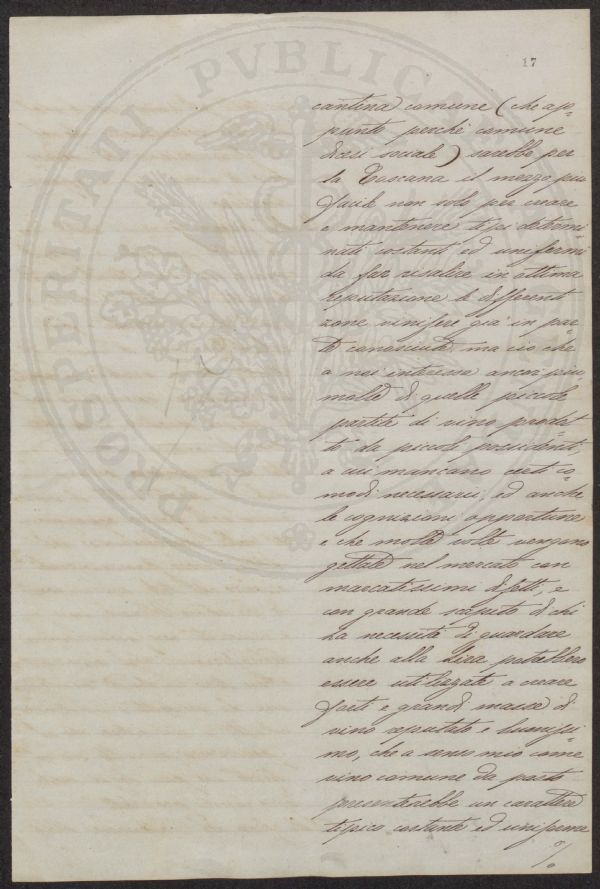 17
cantina comune (che ap=
punto perchè comune
dicesi sociale) sarebbe per
la Toscana il mezzo piu
facile non solo per creare
e mantenere tipi determi=
nati costanti ed uniformi
da far risalire in ottima
reputazione le differenti
zone vinifere già in par=
te conosciute, ma ciò che
a noi interessa ancor piu
molte di quelle piccole
partite di vino prodot=
te da piccoli possidenti,
a cui mancano certi co=
modi necessari, ed anche
le cognizioni opportune
e che molte volte vengono
gettate nel mercato con
marcatissimi difetti, e
con grande scapito di chi
ha necessità di guardare
anche alla lira potrebbero
essere utilizzate a creare
forti e grandi masse di
vino reputato e buonissi=
mo, che a senso mio come
vino comune da pasto
presenterebbe un carattere
tipico costante ed uniforme
%
PROSPERITATI PVBLICAE